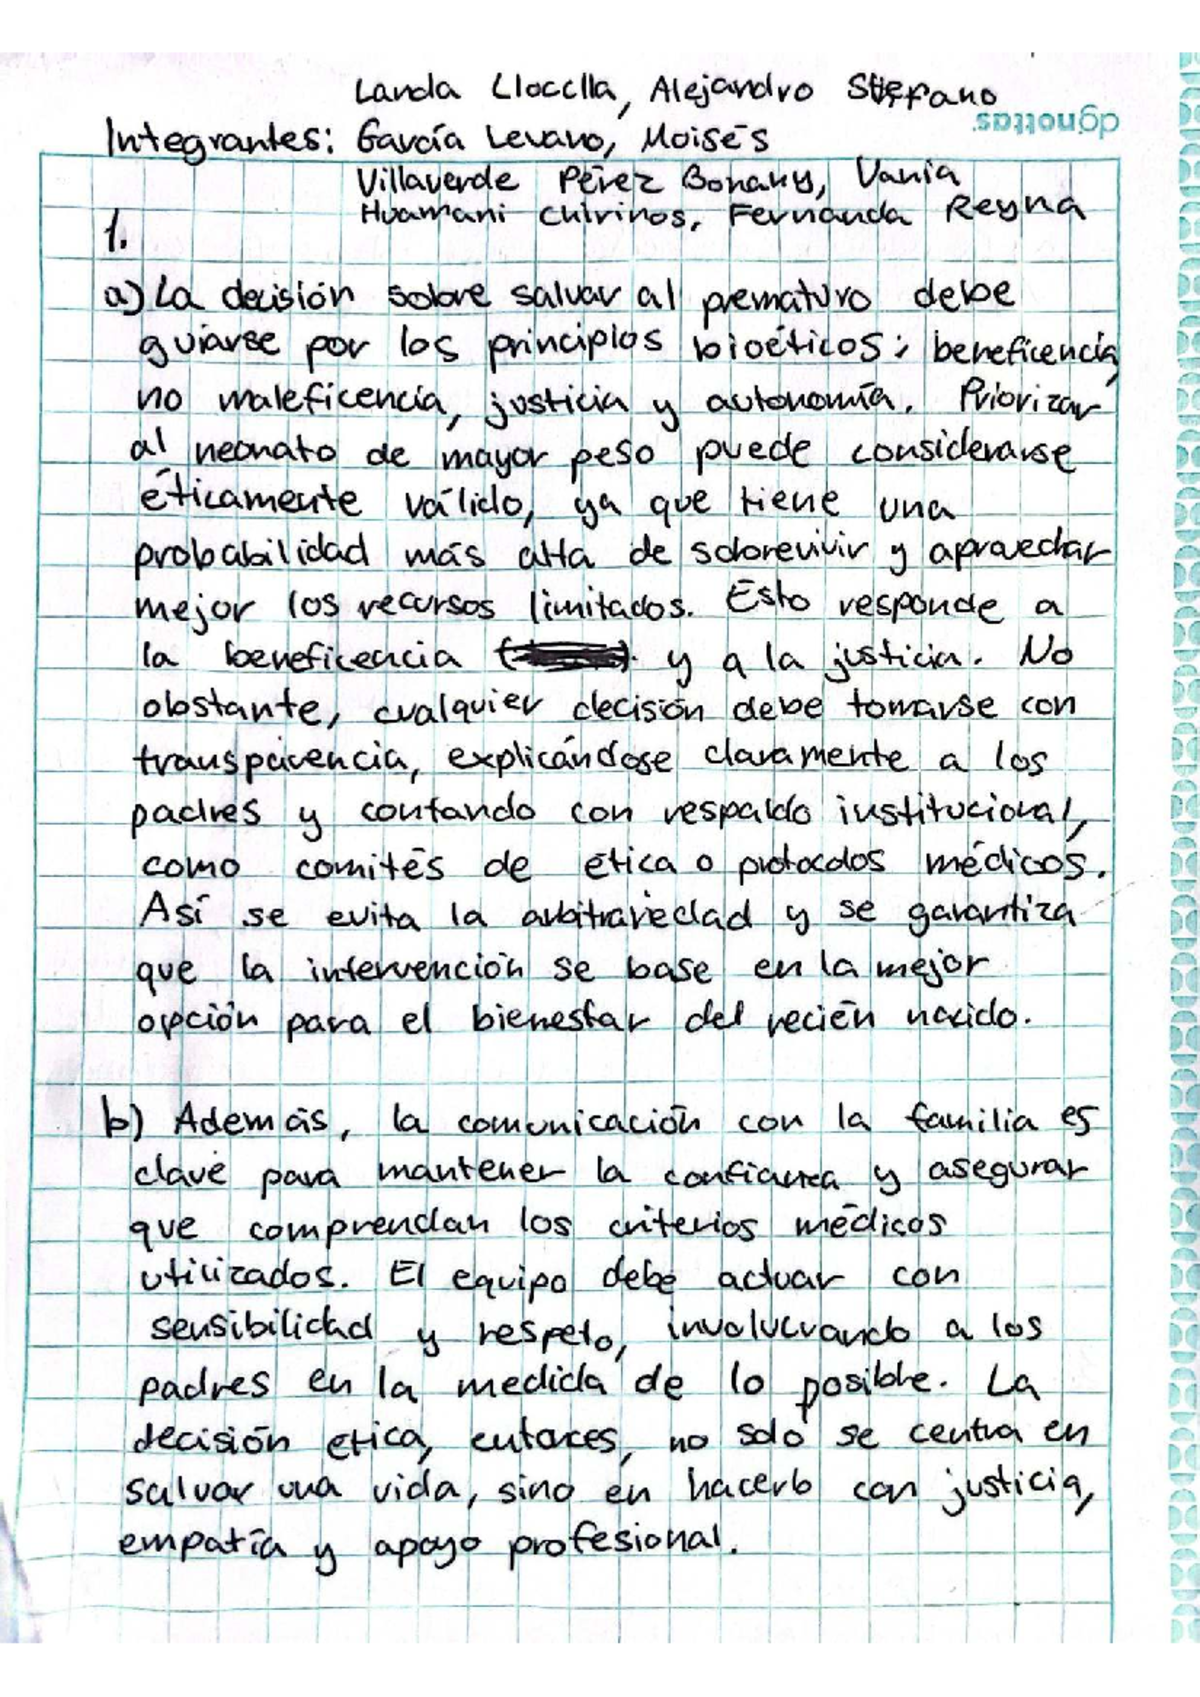 Landa Lloclla, Alejandro Stefano
dgnottas.
Integrantes: García Levano, Moisés
Villaverde Pérez Bonany, Vania
Huamani Chirinos, Fernanda Reyna
1.
a) La decisión sobre salvar al prematuro debe
guiarse por los principios bioéticos: beneficencia,
no maleficencia, justicia y autonomía. Priorizar
al neonato de mayor peso puede considerarse
éticamente válido, ya que tiene una
probabilidad más alta de sobrevivir y aprovechar
mejor los recursos limitados. Esto responde a
la beneficencia y a la justicia. No
obstante, cualquier decisión debe tomarse con
transparencia, explicándose claramente a los
padres y contando con respaldo institucional,
como comités de ética o protocolos médicos.
Así se evita la arbitrariedad y se garantiza
que la intervención se base en la mejor
opción para el bienestar del recién nacido.
b) Además, la comunicación con la familia es
clave para mantener la confianza y asegurar
que comprendan los criterios médicos
utilizados. El equipo debe actuar con
sensibilidad y respeto, involucrando a los
padres en la medida de lo posible. La
decisión etica, entonces, no solo se centra en
salvar una vida, sino en hacerlo con justicia,
empatía y apoyo profesional.